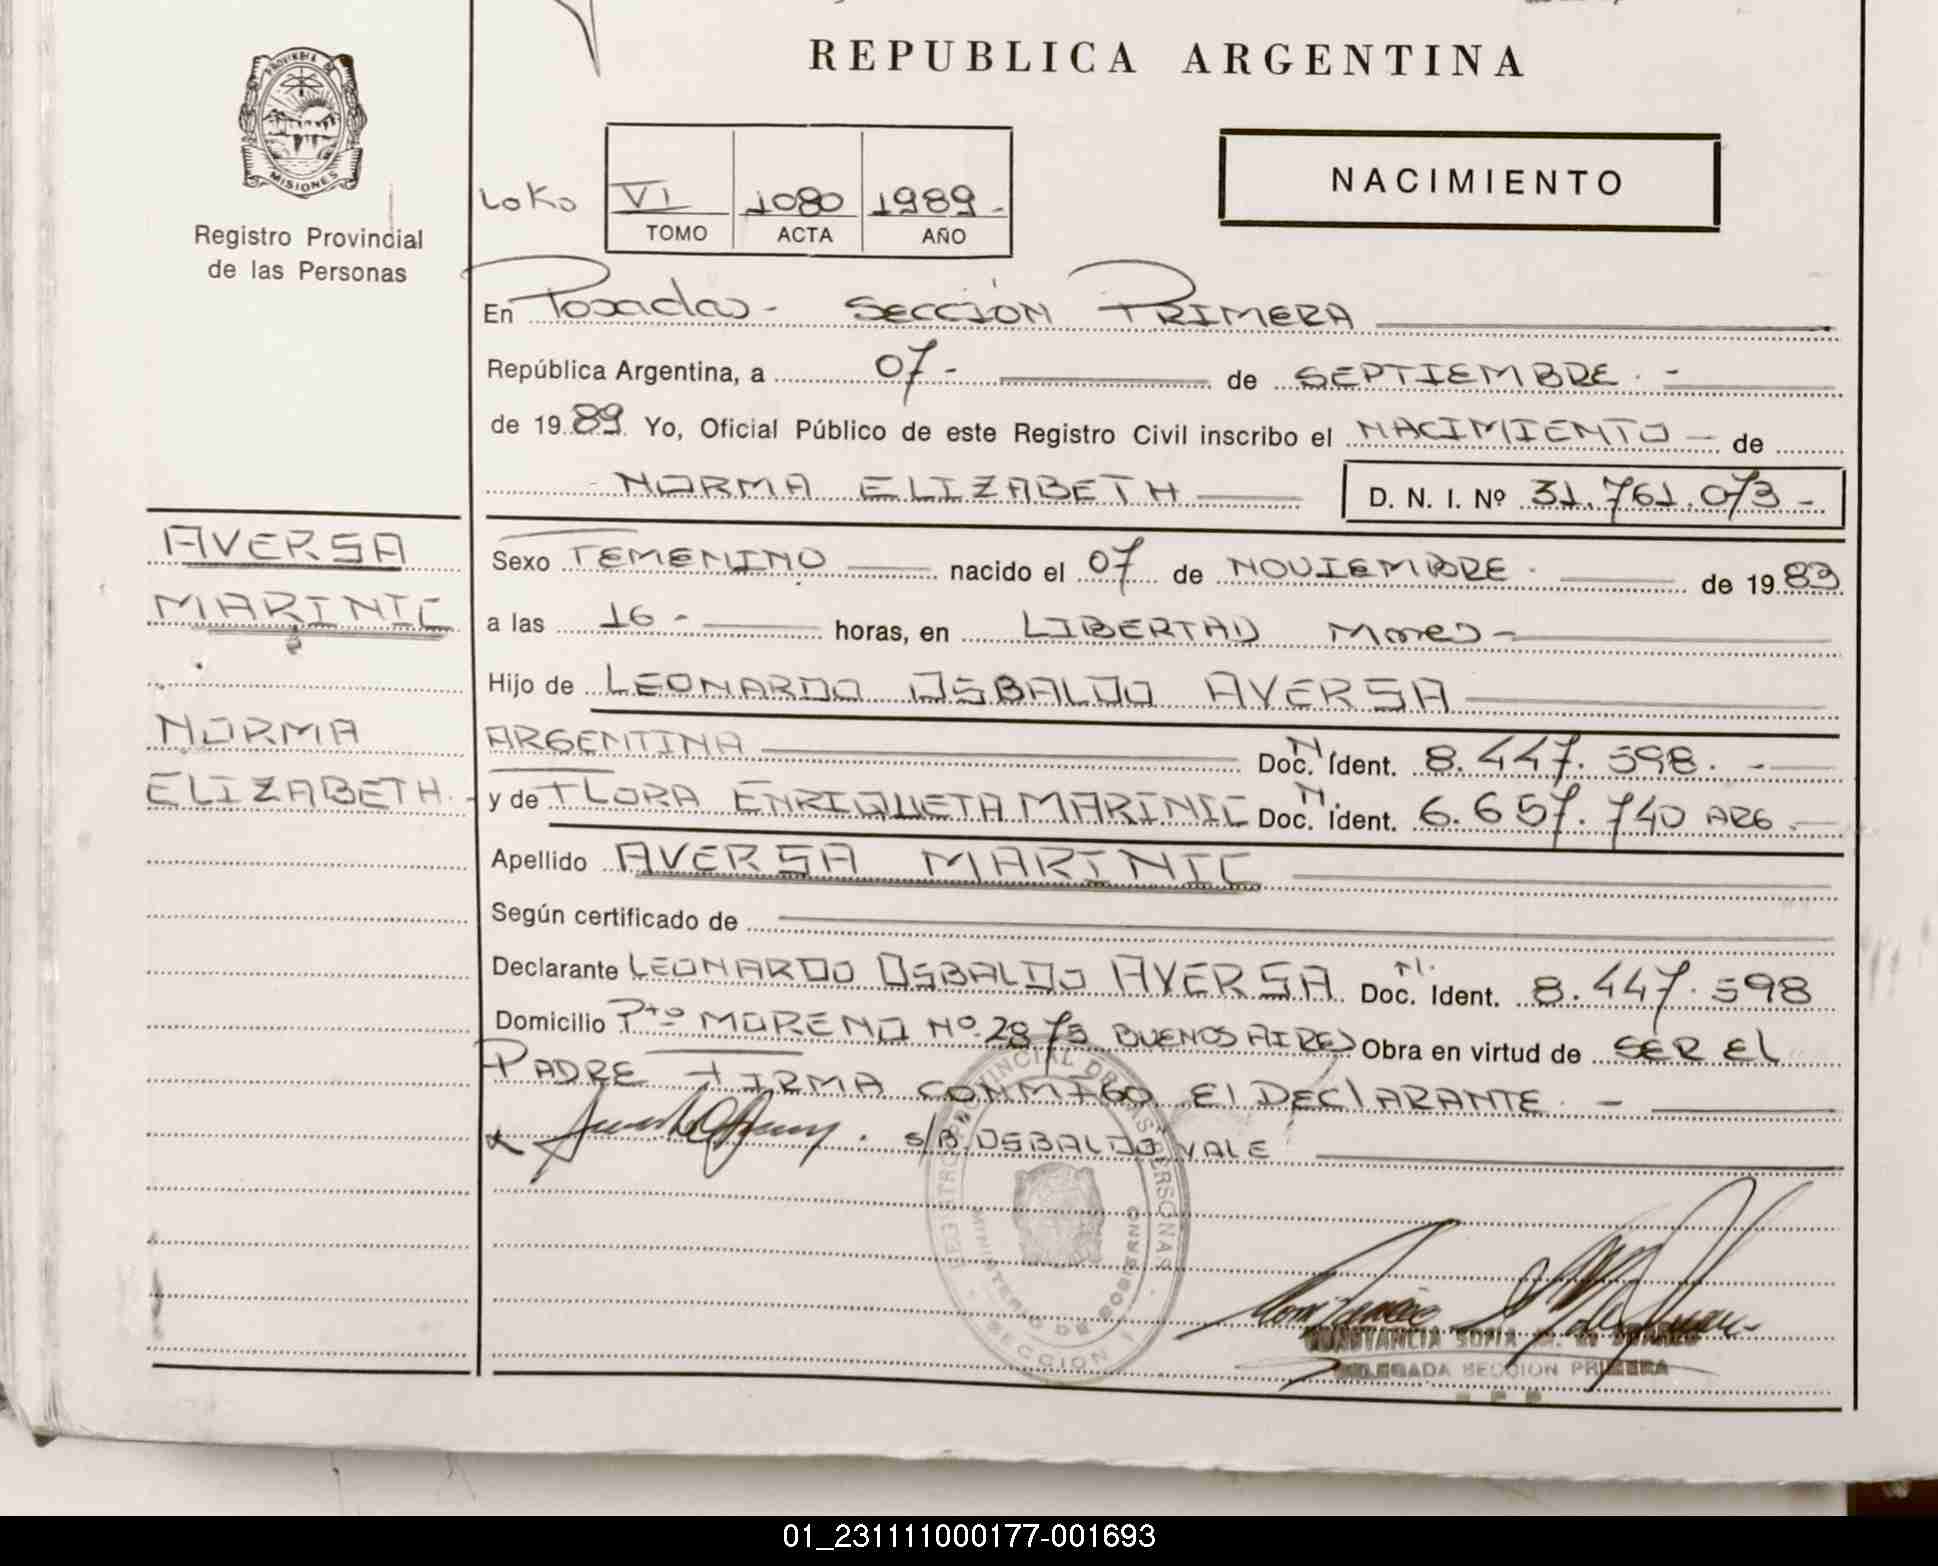 REPUBLICA ARGENTINA
PROVINCIA DE
MISIONES
Registro Provincial
de las Personas
NACIMIENTO
VI 1080 1989.-
TOMO ACTA AÑO
En Posadas - SECCIÓN PRIMERA
República Argentina, a 07 - de SEPTIEMBRE.-
de 1989 Yo, Oficial Público de este Registro Civil inscribo el NACIMIENTO - de
- NORMA ELIZABETH D. N. I. Nº 31.761.073 -
AVERSA
MARINIC
NORMA
ELIZABETH.-
Sexo FEMENINO nacido el 07 de NOVIEMBRE. de 1983
a las 16 - horas, en LIBERTAD -
Hijo de LEONARDO OSBALDO AVERSA
ARGENTINA Doc. N. Ident. 8.447.598. -
y de FLORA ENRIQUETA MARINIC Doc. N. Ident. 6.657.740 ARG.-
Apellido AVERSA MARINIC
Según certificado de
Declarante LEONARDO OSBALDO AVERSA N. Doc. Ident. 8.447.598
Domicilio Pto MORENO Nº 2875 BUENOS AIRES Obra en virtud de SER EL
PADRE FIRMA CONMIGO El DEClARANTE. -
s/B. OSBALDO VALE
REGISTRO PROVINCIAL DE LAS PERSONAS
MINISTERIO DE GOBIERNO
SECCION 1
CONSTANCIA SOFIA
DELEGADA SECCION PRIMERA
01_231111000177-001693